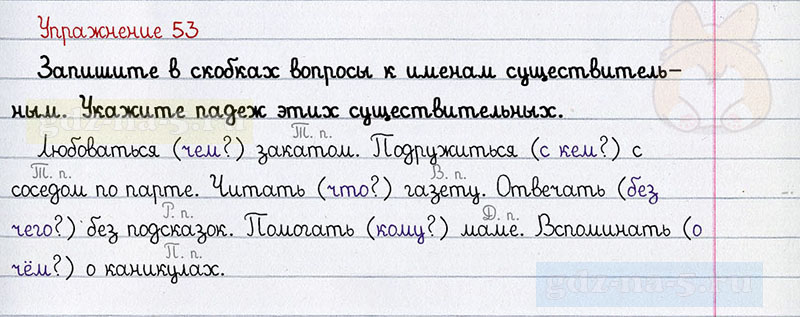 Упражнение 53
Запишите в скобках вопросы к именам существитель-
ным. Укажите падеж этих существительных.
Т. п.
Любоваться (чем?) закатом. Подружиться (с кем?) с
Т. п. В. п.
соседом по парте. Читать (что?) газету. Отвечать (без
Р. п. Д. п.
чего?) без подсказок. Помогать (кому?) маме. Вспоминать (о
П. п.
чём?) о каникулах.
gdz-na-5.ru
gdz-na-5.ru